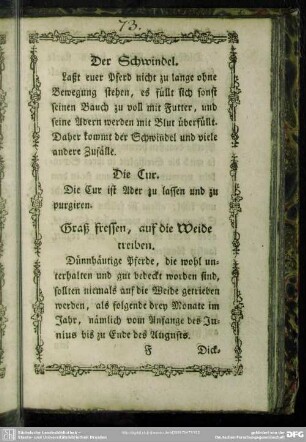 73.
Der Schwindel.
Laßt euer Pferd nicht zu lange ohne
Bewegung stehen, es füllt sich sonst
seinen Bauch zu voll mit Futter, und
seine Adern werden mit Blut überfüllt.
Daher kommt der Schwindel und viele
andere Zufälle.
Die Cur.
Die Cur ist Ader zu lassen und zu
purgiren.
Graß fressen, auf die Weide
treiben.
Dünnhäutige Pferde, die wohl un-
terhalten und gut bedeckt worden sind,
sollten niemals auf die Weide getrieben
werden, als folgende drey Monate im
Jahr, nämlich vom Anfange des Ju-
nius bis zu Ende des Augusts.
F Dick-